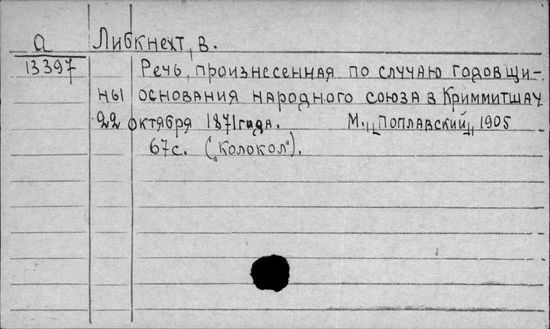 а Либкнехт, В.
13397 Речь, произнесенная по случаю годовщи-
ны основания народного союза в Криммитшау
22 октября 1871 гида. М. „Поплавский„, 1905
67 с. („Колокол").